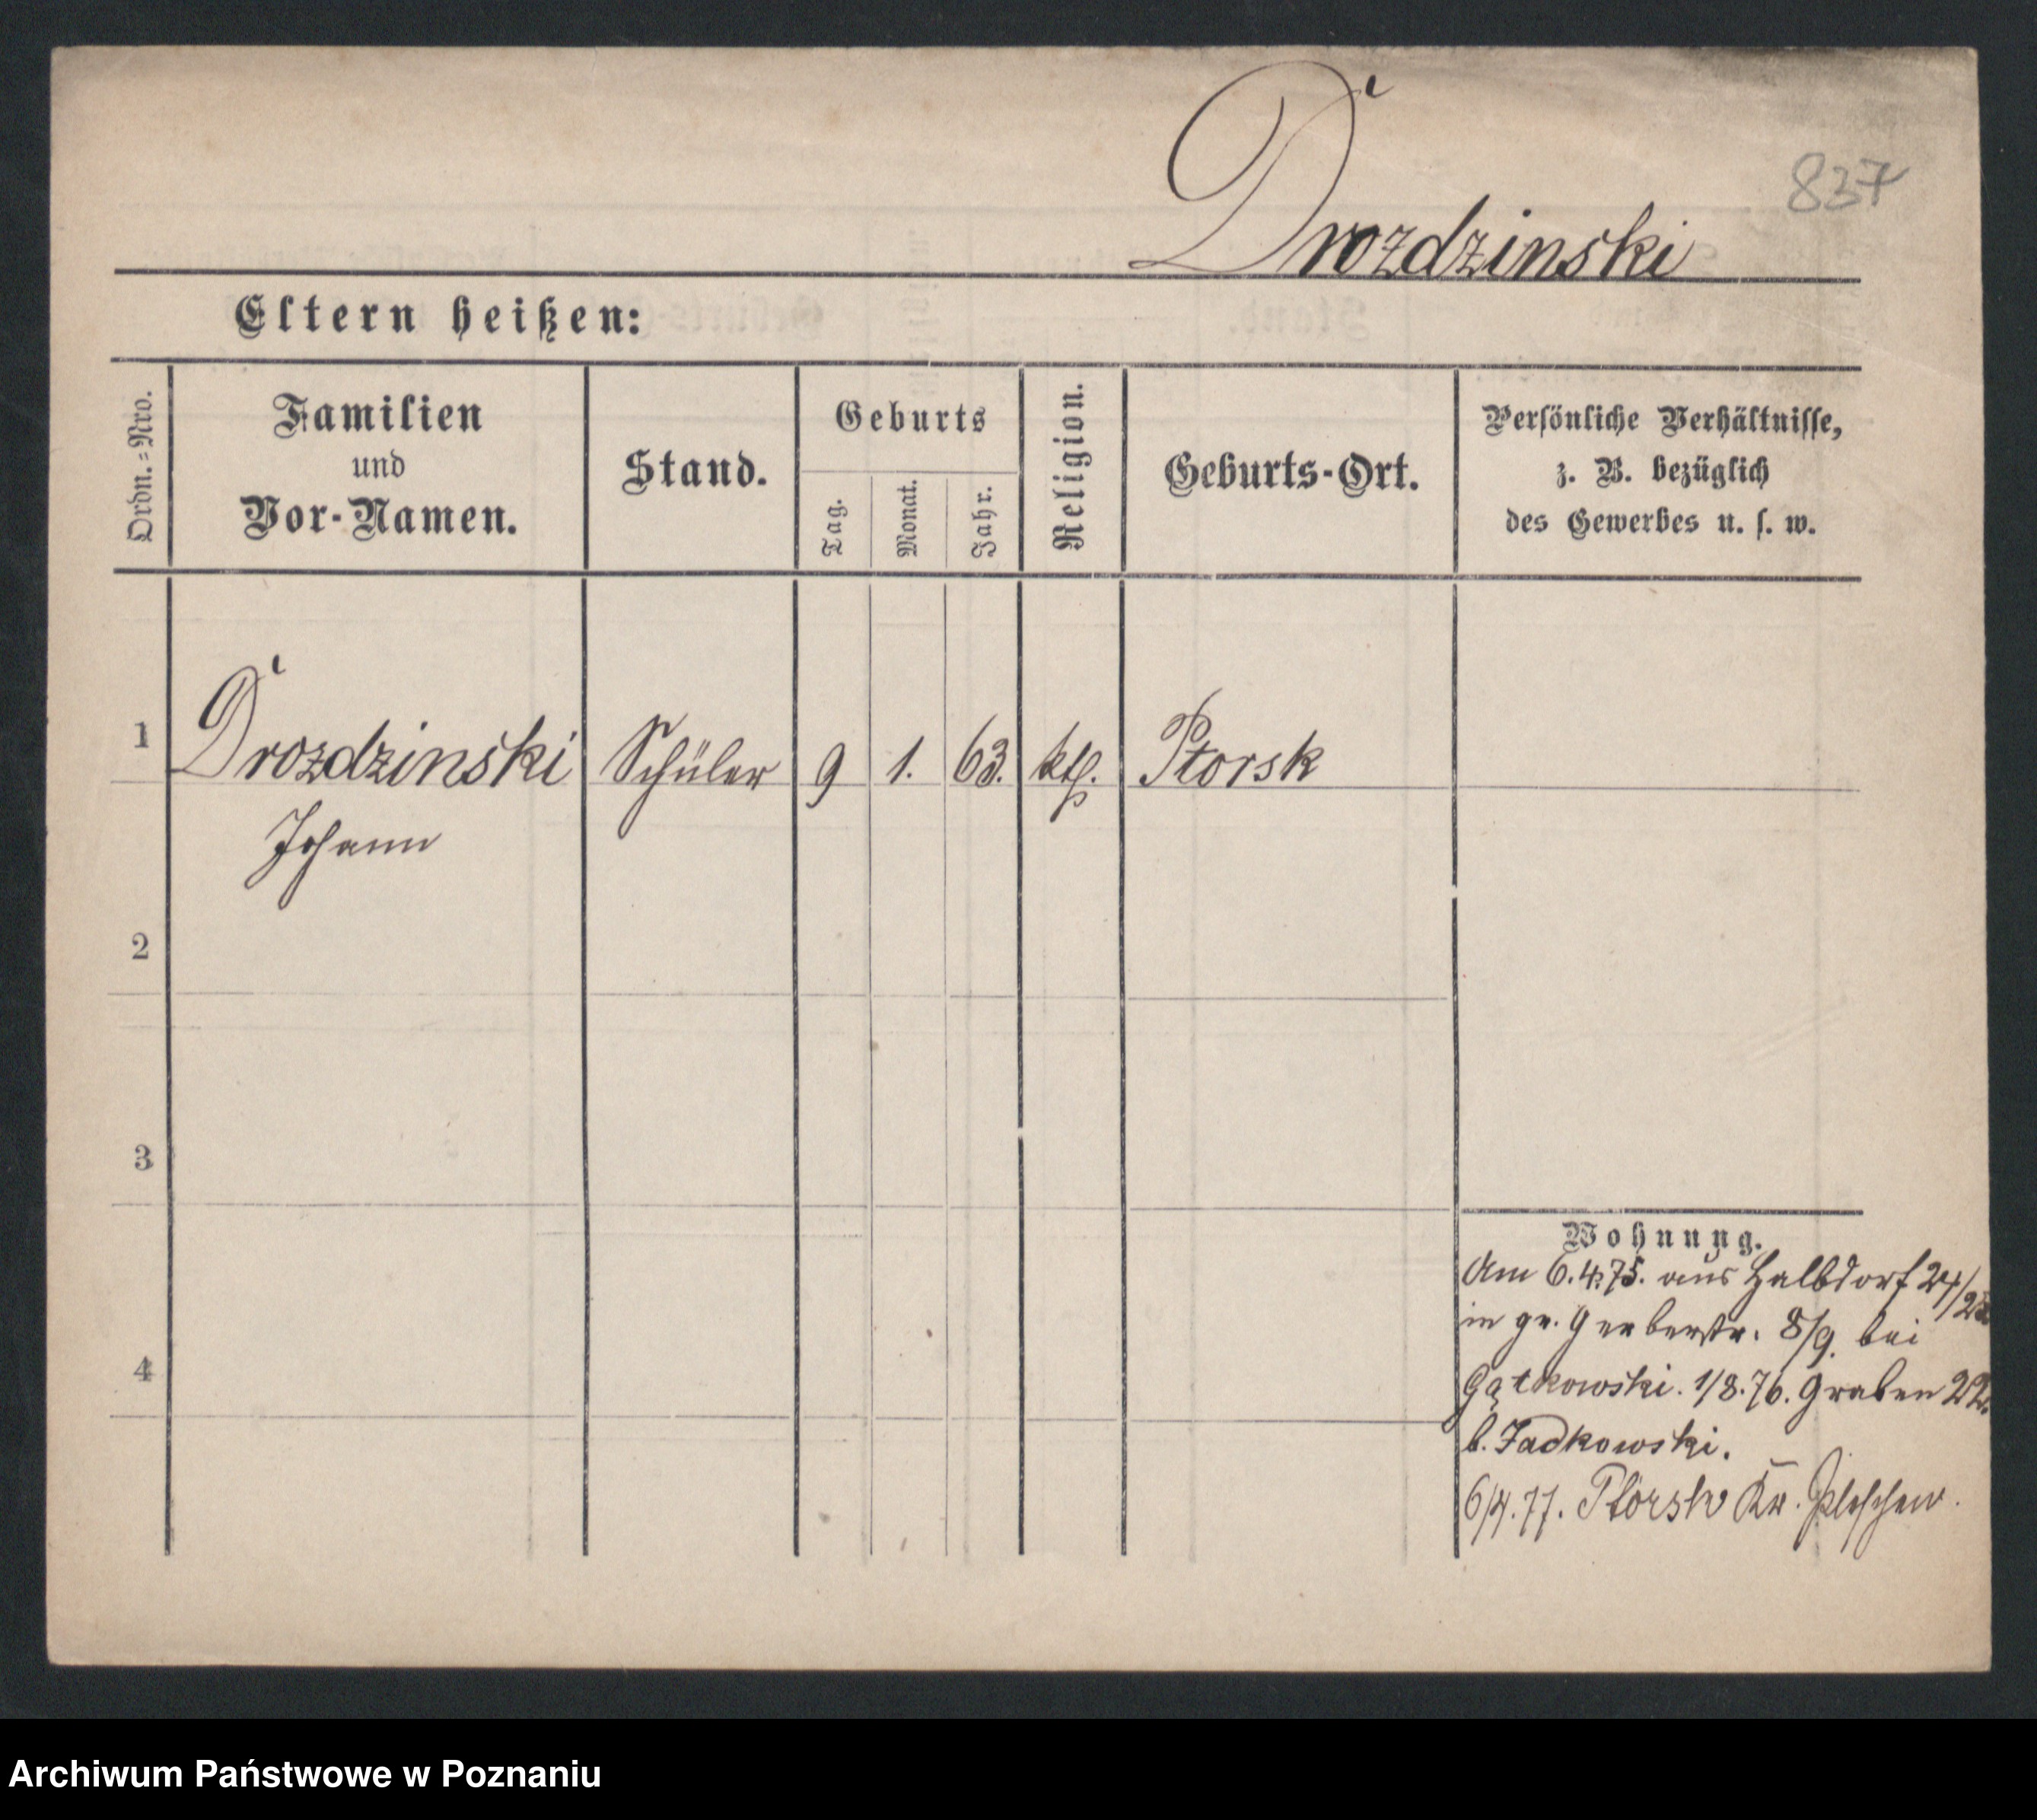 837
Drozdzinski
Eltern heißen:
Ordn.-Nro.
Familien
und
Vor-Namen.
Stand.
Geburts
Tag.
Monat.
Jahr.
Religion.
Geburts-Ort.
Persönliche Verhältnisse,
z. B. bezüglich
des Gewerbes u. s. w.
1 Drozdzinski Schüler 9 1. 63. kth. Ptorsk
Johann
2
3
4
Wohnung.
Am 6.4.75. aus Halbdorf
in gr. Gerberstr. 8/9. bei
Gątkowski. 1/8.76. Graben 22.
b. Jadkowski.
6/4.77. Ptorsk Kr. Pleschen.
Archiwum Państwowe w Poznaniu